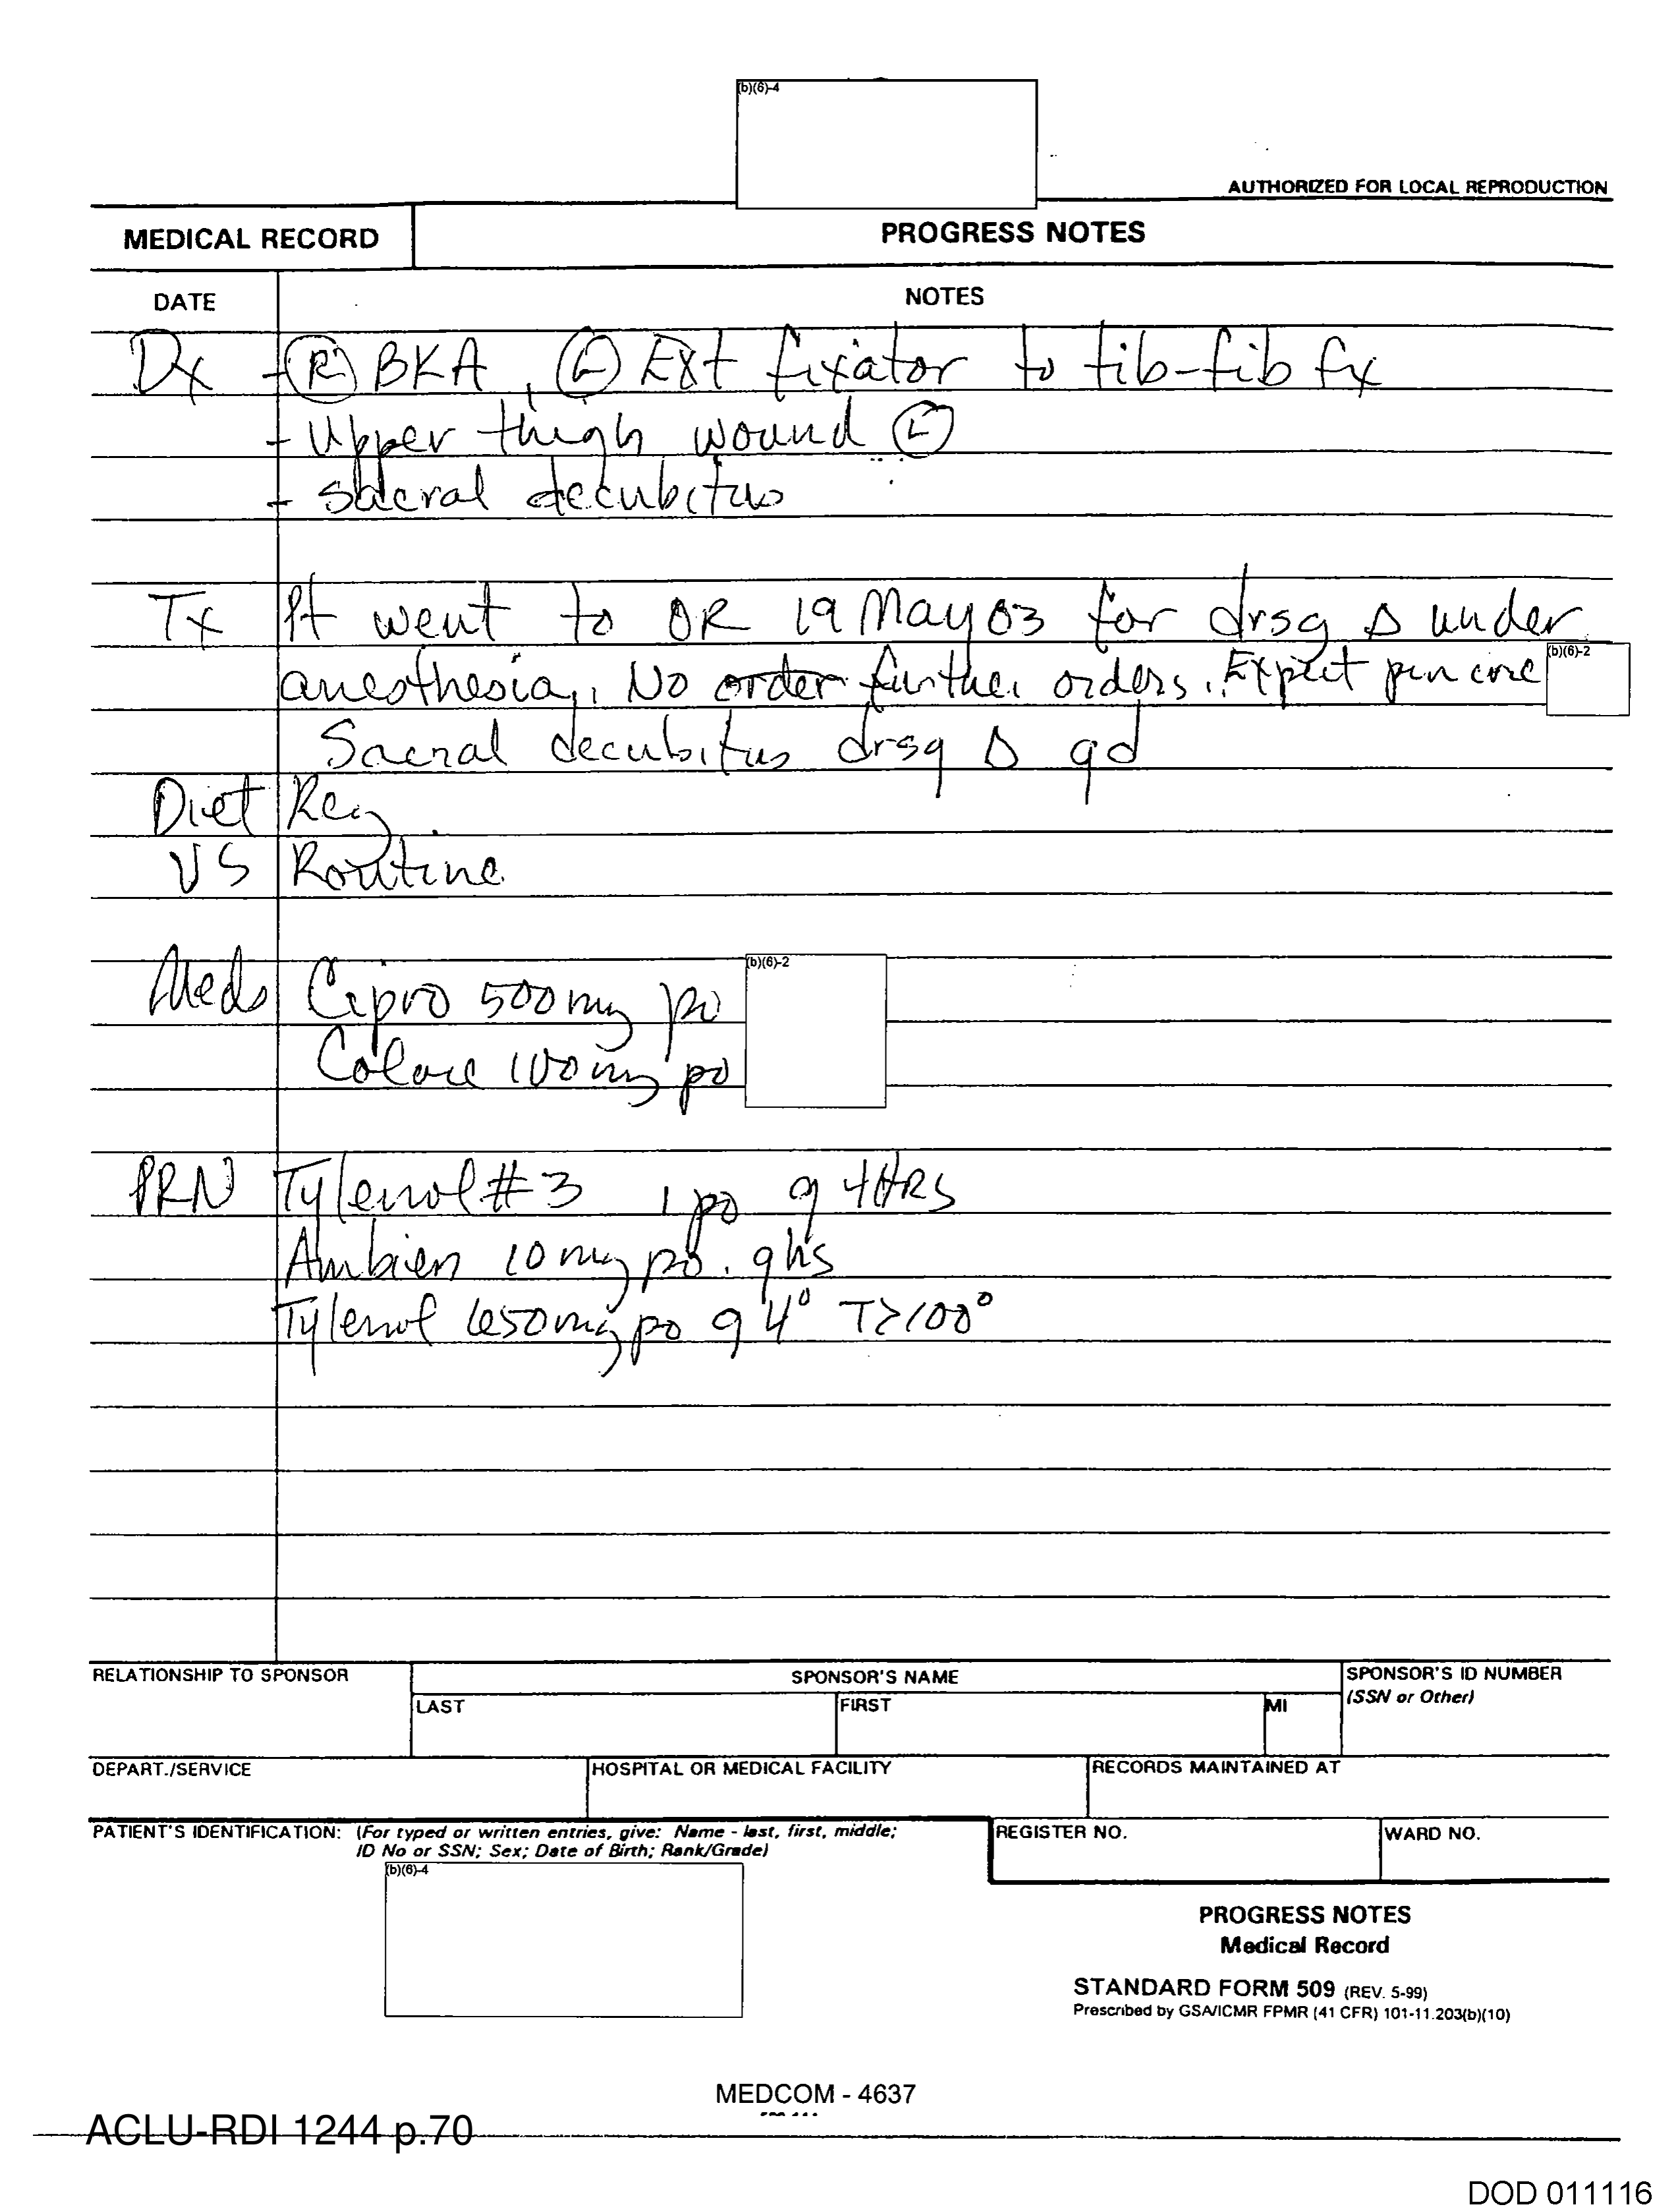 (b)(6)-4
AUTHORIZED FOR LOCAL REPRODUCTION
MEDICAL RECORD PROGRESS NOTES
DATE NOTES
Dx - Ⓡ BKA, Ⓛ Ext fixator to tib-fib fx
- Upper thigh wound Ⓛ
- Sacral decubitus
Tx Pt went to OR 19 May 03 for drsg Δ under
anesthesia. No order further orders. Expect pin care (b)(6)-2
Sacral decubitus drsg Δ qd
Diet Reg
VS Routine
Meds Cipro 500mg po (b)(6)-2
Colace 100mg po
PRN Tylenol #3 1 po q 4HRS
Ambien 10mg po. qhs
Tylenol 650mg po q 4° T>100°
RELATIONSHIP TO SPONSOR SPONSOR'S NAME SPONSOR'S ID NUMBER
LAST FIRST MI (SSN or Other)
DEPART./SERVICE HOSPITAL OR MEDICAL FACILITY RECORDS MAINTAINED AT
PATIENT'S IDENTIFICATION: (For typed or written entries, give: Name - last, first, middle; REGISTER NO. WARD NO.
ID No or SSN; Sex; Date of Birth; Rank/Grade)
(b)(6)-4
PROGRESS NOTES
Medical Record
STANDARD FORM 509 (REV. 5-99)
Prescribed by GSA/ICMR FPMR (41 CFR) 101-11.203(b)(10)
MEDCOM - 4637
ACLU-RDI 1244 p.70
DOD 011116